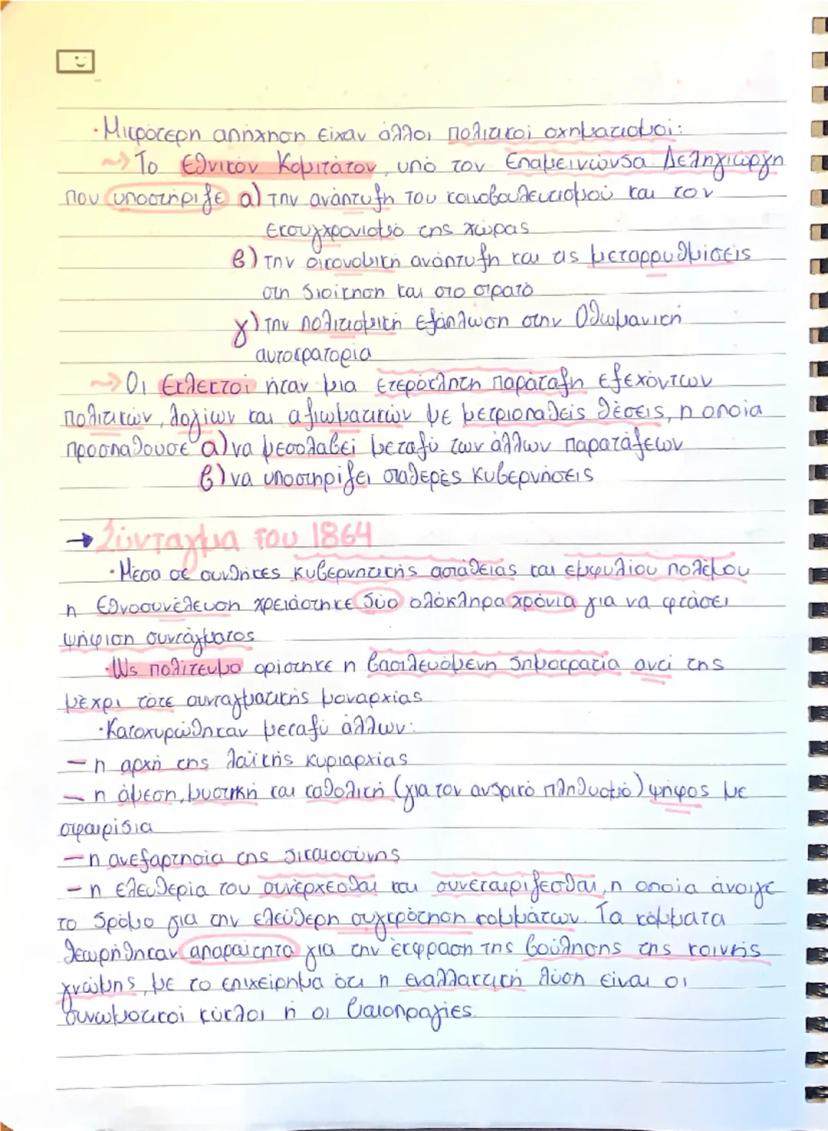 ·Μικρότερη απήχηση είχαν άλλοι πολιτικοί σχηματισμοί:
~> Το Εθνικόν Κομιτάτον, υπό τον Επαμεινώνδα Δεληγιώργη
που υποστήριζε α) την ανάπτυξη του κοινοβουλευτισμού και τον
εκσυγχρονισμό της χώρας
β) την οικονομική ανάπτυξη και τις μεταρρυθμίσεις
στη διοίκηση και στο στρατό
γ) την πολιτισμική εξάπλωση στην Οθωμανική
αυτοκρατορία
~> Οι Εκλεκτοί ήταν μια ετερόκλητη παράταξη εξεχόντων
πολιτικών, λογίων και αξιωματικών με μετριοπαθείς θέσεις, η οποία
προσπαθούσε α) να μεσολαβεί μεταξύ των άλλων παρατάξεων
β) να υποστηρίζει σταθερές κυβερνήσεις
→ Σύνταγμα του 1864
·Μέσα σε συνθήκες κυβερνητικής αστάθειας και εμφυλίου πολέμου
η Εθνοσυνέλευση χρειάστηκε δύο ολόκληρα χρόνια για να φτάσει
ψήφιση συντάγματος
·Ως πολίτευμα ορίστηκε η βασιλευόμενη δημοκρατία αντί της
μέχρι τότε συνταγματικής μοναρχίας
·Κατοχυρώθηκαν μεταξύ άλλων:
– η αρχή της λαϊκής κυριαρχίας
– η άμεση, μυστική και καθολική (για τον ανδρικό πληθυσμό) ψήφος με
σφαιρίδια
– η ανεξαρτησία της δικαιοσύνης
– η ελευθερία του συνέρχεσθαι και συνεταιρίζεσθαι, η οποία άνοιγε
το δρόμο για την ελεύθερη συγκρότηση κομμάτων. Τα κόμματα
θεωρήθηκαν απαραίτητα για την έκφραση της βούλησης της κοινής
γνώμης, με το επιχείρημα ότι η εναλλακτική λύση είναι οι
συνωμοτικοί κύκλοι ή οι βιαιοπραγίες